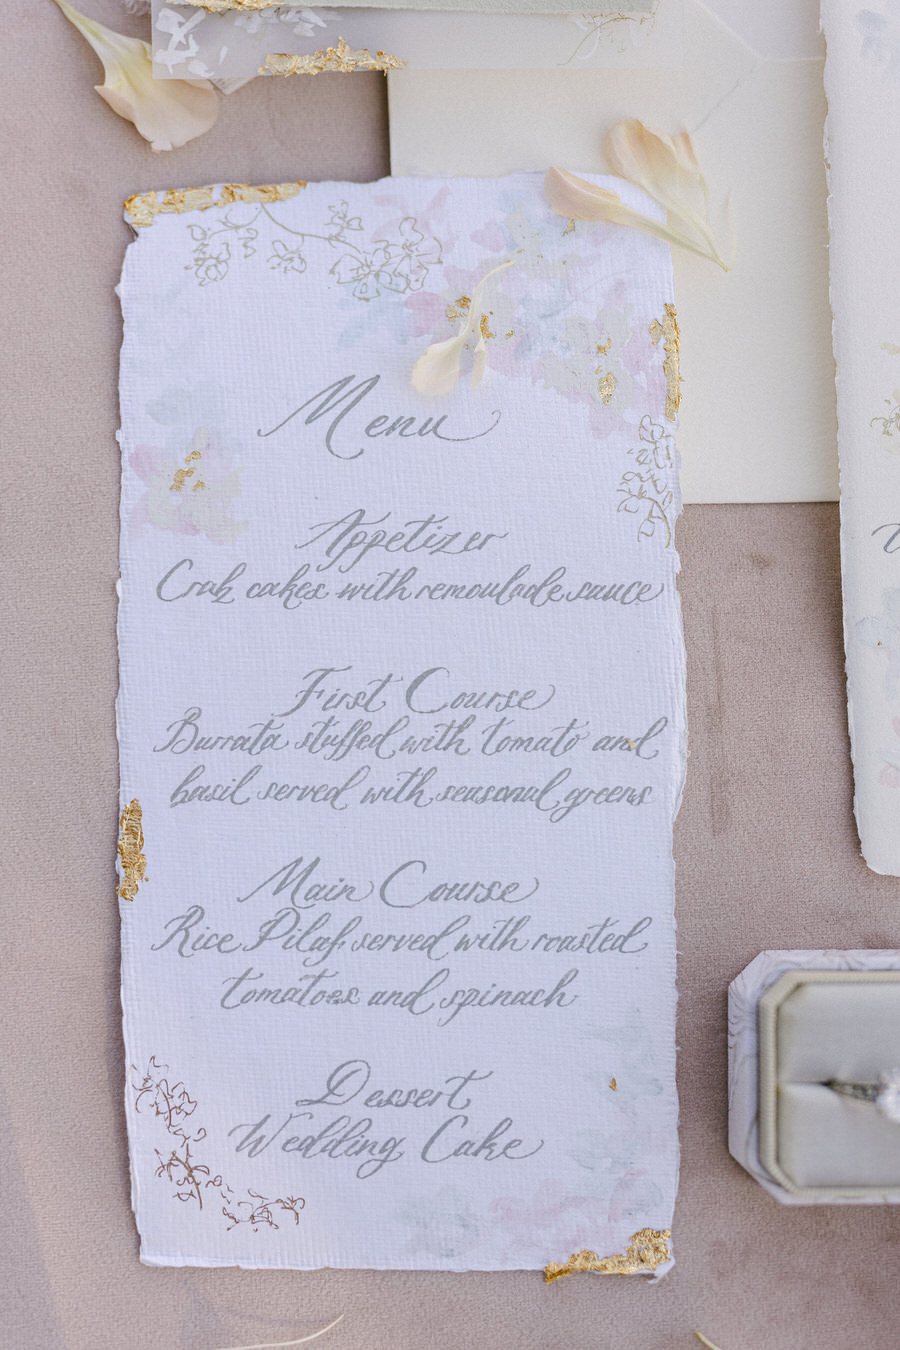 Menu
Appetizer
Crab cakes with remoulade sauce
First Course
Burrata stuffed with tomato and
basil served with seasonal greens
Main Course
Rice Pilaf served with roasted
tomatoes and spinach
Dessert
Wedding Cake